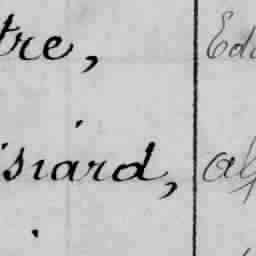 tre, Edo
isiard, alf